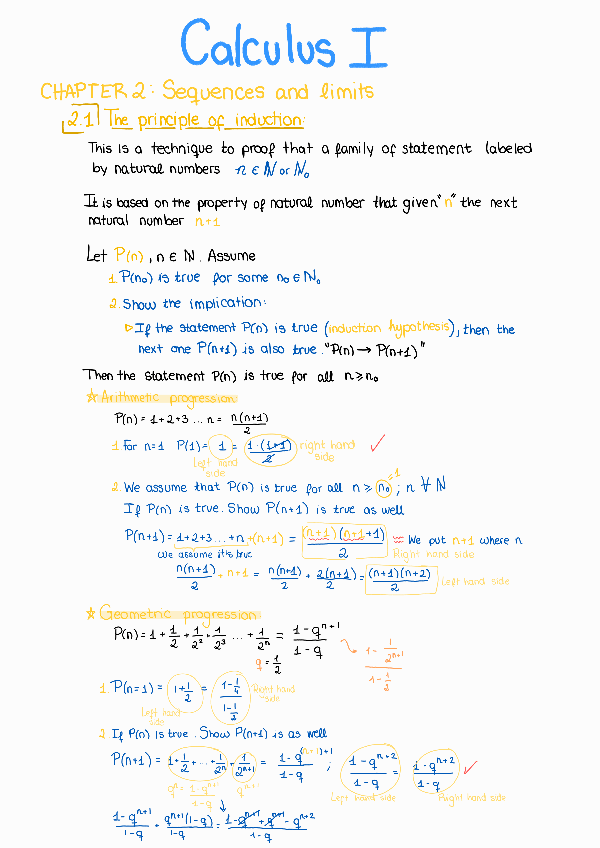 Calculus I
CHAPTER 2: Sequences and limits
2.1 The principle of induction:
This is a technique to proof that a family of statement labeled
by natural numbers n ∈ N or N₀
It is based on the property of natural number that given "n" the next
natural number n+1
Let P(n), n ∈ N. Assume
1. P(n₀) is true for some n₀ ∈ N₀
2. Show the implication:
▷ If the statement P(n) is true (induction hypothesis), then the
next one P(n+1) is also true. "P(n) → P(n+1)"
Then the statement P(n) is true for all n ≥ n₀
☆ Arithmetic progression
P(n) = 1+2+3 ... n = n(n+1)/2
1. For n=1 P(1) = 1 = 1·(1+1)/2 right hand side ✓
Left hand side
2. We assume that P(n) is true for all n ≥ n₀ =1 ; n ∀ N
If P(n) is true. Show P(n+1) is true as well
P(n+1) = 1+2+3+...+n +(n+1) = (n+1)(n+1+1)/2 ≈ We put n+1 where n
We assume it's true Right hand side
n(n+1)/2 + n+1 = n(n+1)/2 + 2(n+1)/2 = (n+1)(n+2)/2 Left hand side
☆ Geometric progression:
P(n) = 1 + 1/2 + 1/2² + 1/2³ ... + 1/2ⁿ = (1-qⁿ⁺¹)/(1-q)
q = 1/2 (1 - 1/2ⁿ⁺¹)/(1 - 1/2)
1. P(n=1) = 1+1/2 = (1-1/4)/(1-1/2) Right hand side
Left hand side
2. If P(n) is true. Show P(n+1) is as well
P(n+1) = 1+1/2+...+1/2ⁿ + 1/2ⁿ⁺¹ = (1-q⁽ⁿ⁺¹⁾⁺¹)/(1-q) ; (1-qⁿ⁺²)/(1-q) = (1-qⁿ⁺²)/(1-q) ✓
qⁿ = (1-qⁿ⁺¹)/(1-q) qⁿ⁺¹ Left hand side Right hand side
(1-qⁿ⁺¹)/(1-q) + qⁿ⁺¹(1-q)/(1-q) = (1-qⁿ⁺¹+qⁿ⁺¹-qⁿ⁺²)/(1-q)